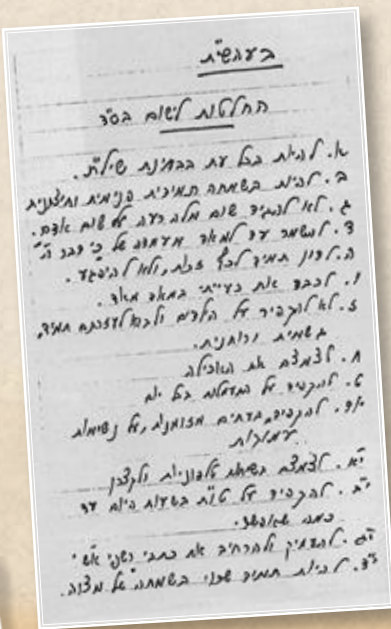 בעהשי"ת
החלטות ליישום בס"ד
א. להיות בכל עת בבחינת שילת.
ב. להיות בשמחה תמידית פנימית וחיצונית
ג. לא להגיד שום מלה רעה על שום אדם.
ד. להשמר עד למאד מעמדה של כי דבר ה'
ה. לדון תמיד לכף זכות, ולא להיפגע.
ו. לכבד את רעייתי במאד מאד.
ז. לא להקפיד על הילדים ולבוא לעזרתם תמיד,
גשמית ורוחנית.
ח. לצמצם את האכילה
ט. להקפיד על התעמלות בכל יום
יו"ד. להקפיד, בעתים מזומנות, על נשימות
עמוקות
י"א. לצמצם בשיחות טלפוניות ולקצרן
י"ב. להקפיד על טלית בשעות היום עד
כמה שאפשר.
י"ג. להעמיק ולהרחיב את כתבי רשפי אש
י"ד. להיות תמיד שרוי בשמחה של מצוה.